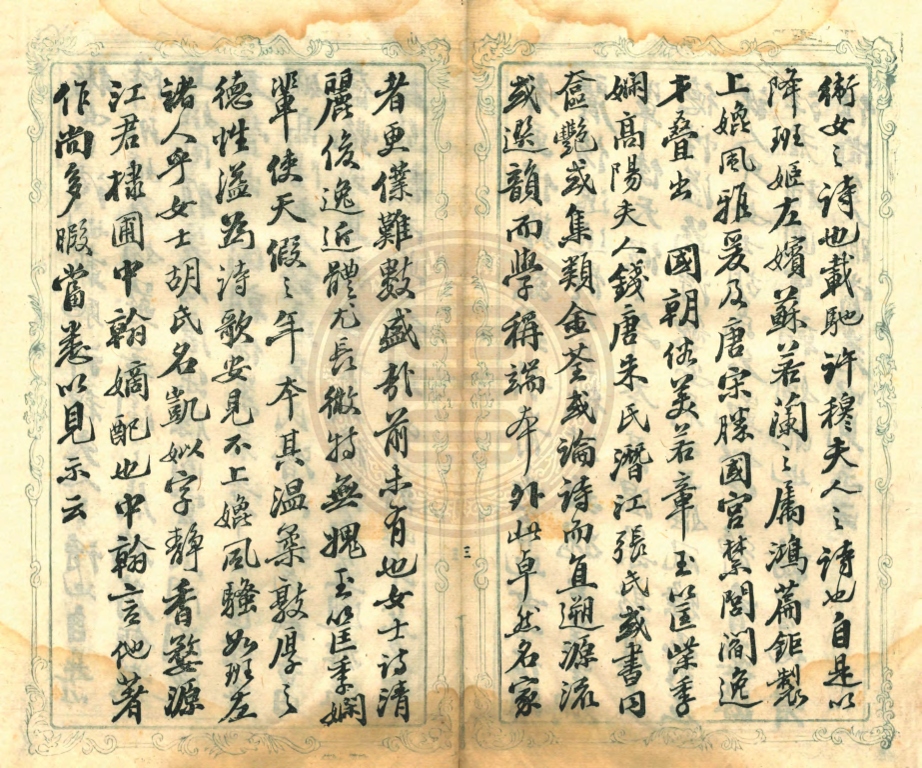 衛女之詩也載馳許穆夫人之詩也自是以
降班姬左嬪蘇若蘭之屬鴻篇鉅製
上媲風雅爰及唐宋勝國宮禁閨閤逸
才疊出　國朝俗美若章玉筐柴季
嫻高陽夫人錢唐朱氏潛江張氏或書因
奩艷或集類金荃或論詩而直遡源流
或選韻而學稱端本外此卓然名家
三
者更僕難數盛哉前未有也女士詩清
麗俊逸近體尤長微特無媿玉筐季嫻
輩使天假之年本其溫柔敦厚之
德性溢為詩歌安見不上媲風騷如班左
諸人乎女士胡氏名凱姒字靜香婺源
江君棣圃中翰嫡配也中翰言他著
作尚多暇當悉以見示云